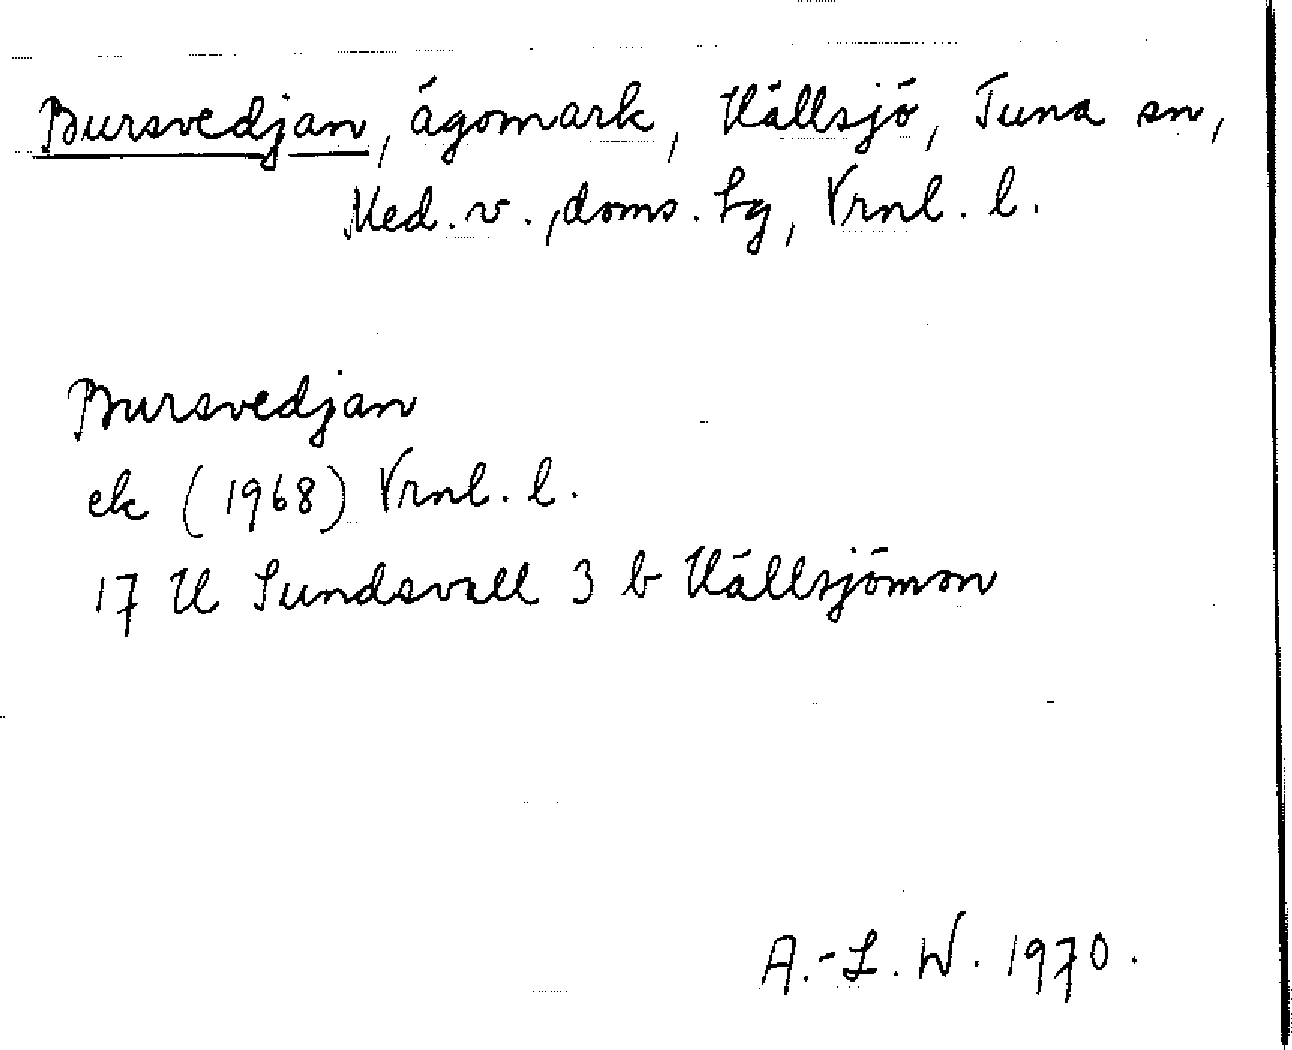 Bursvedjan, ägomark, Hällsjö, Tuna sn,
Med. v., doms. Lg, Vrnl. l.
Bursvedjan
ek (1968) Vrnl. l.
17 H Sundsvall 3 b Hällsjömon
A.-L. W. 1970.